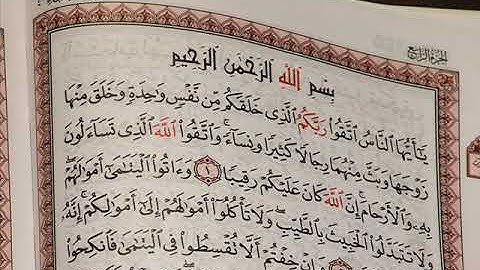 الجزء الرابع
بِسْمِ ٱللَّهِ ٱلرَّحْمَٰنِ ٱلرَّحِيمِ
يَٰٓأَيُّهَا ٱلنَّاسُ ٱتَّقُوا۟ رَبَّكُمُ ٱلَّذِى خَلَقَكُم مِّن نَّفْسٍ وَٰحِدَةٍ وَخَلَقَ مِنْهَا
زَوْجَهَا وَبَثَّ مِنْهُمَا رِجَالًا كَثِيرًا وَنِسَآءً ۚ وَٱتَّقُوا۟ ٱللَّهَ ٱلَّذِى تَسَآءَلُونَ
بِهِۦ وَٱلْأَرْحَامَ ۚ إِنَّ ٱللَّهَ كَانَ عَلَيْكُمْ رَقِيبًا ١ وَءَاتُوا۟ ٱلْيَتَٰمَىٰٓ أَمْوَٰلَهُمْ ۖ
وَلَا تَتَبَدَّلُوا۟ ٱلْخَبِيثَ بِٱلطَّيِّبِ ۖ وَلَا تَأْكُلُوٓا۟ أَمْوَٰلَهُمْ إِلَىٰٓ أَمْوَٰلِكُمْ ۚ إِنَّهُۥ
وَإِنْ خِفْتُمْ أَلَّا تُقْسِطُوا۟ فِى ٱلْيَتَٰمَىٰ فَٱنكِحُوا۟